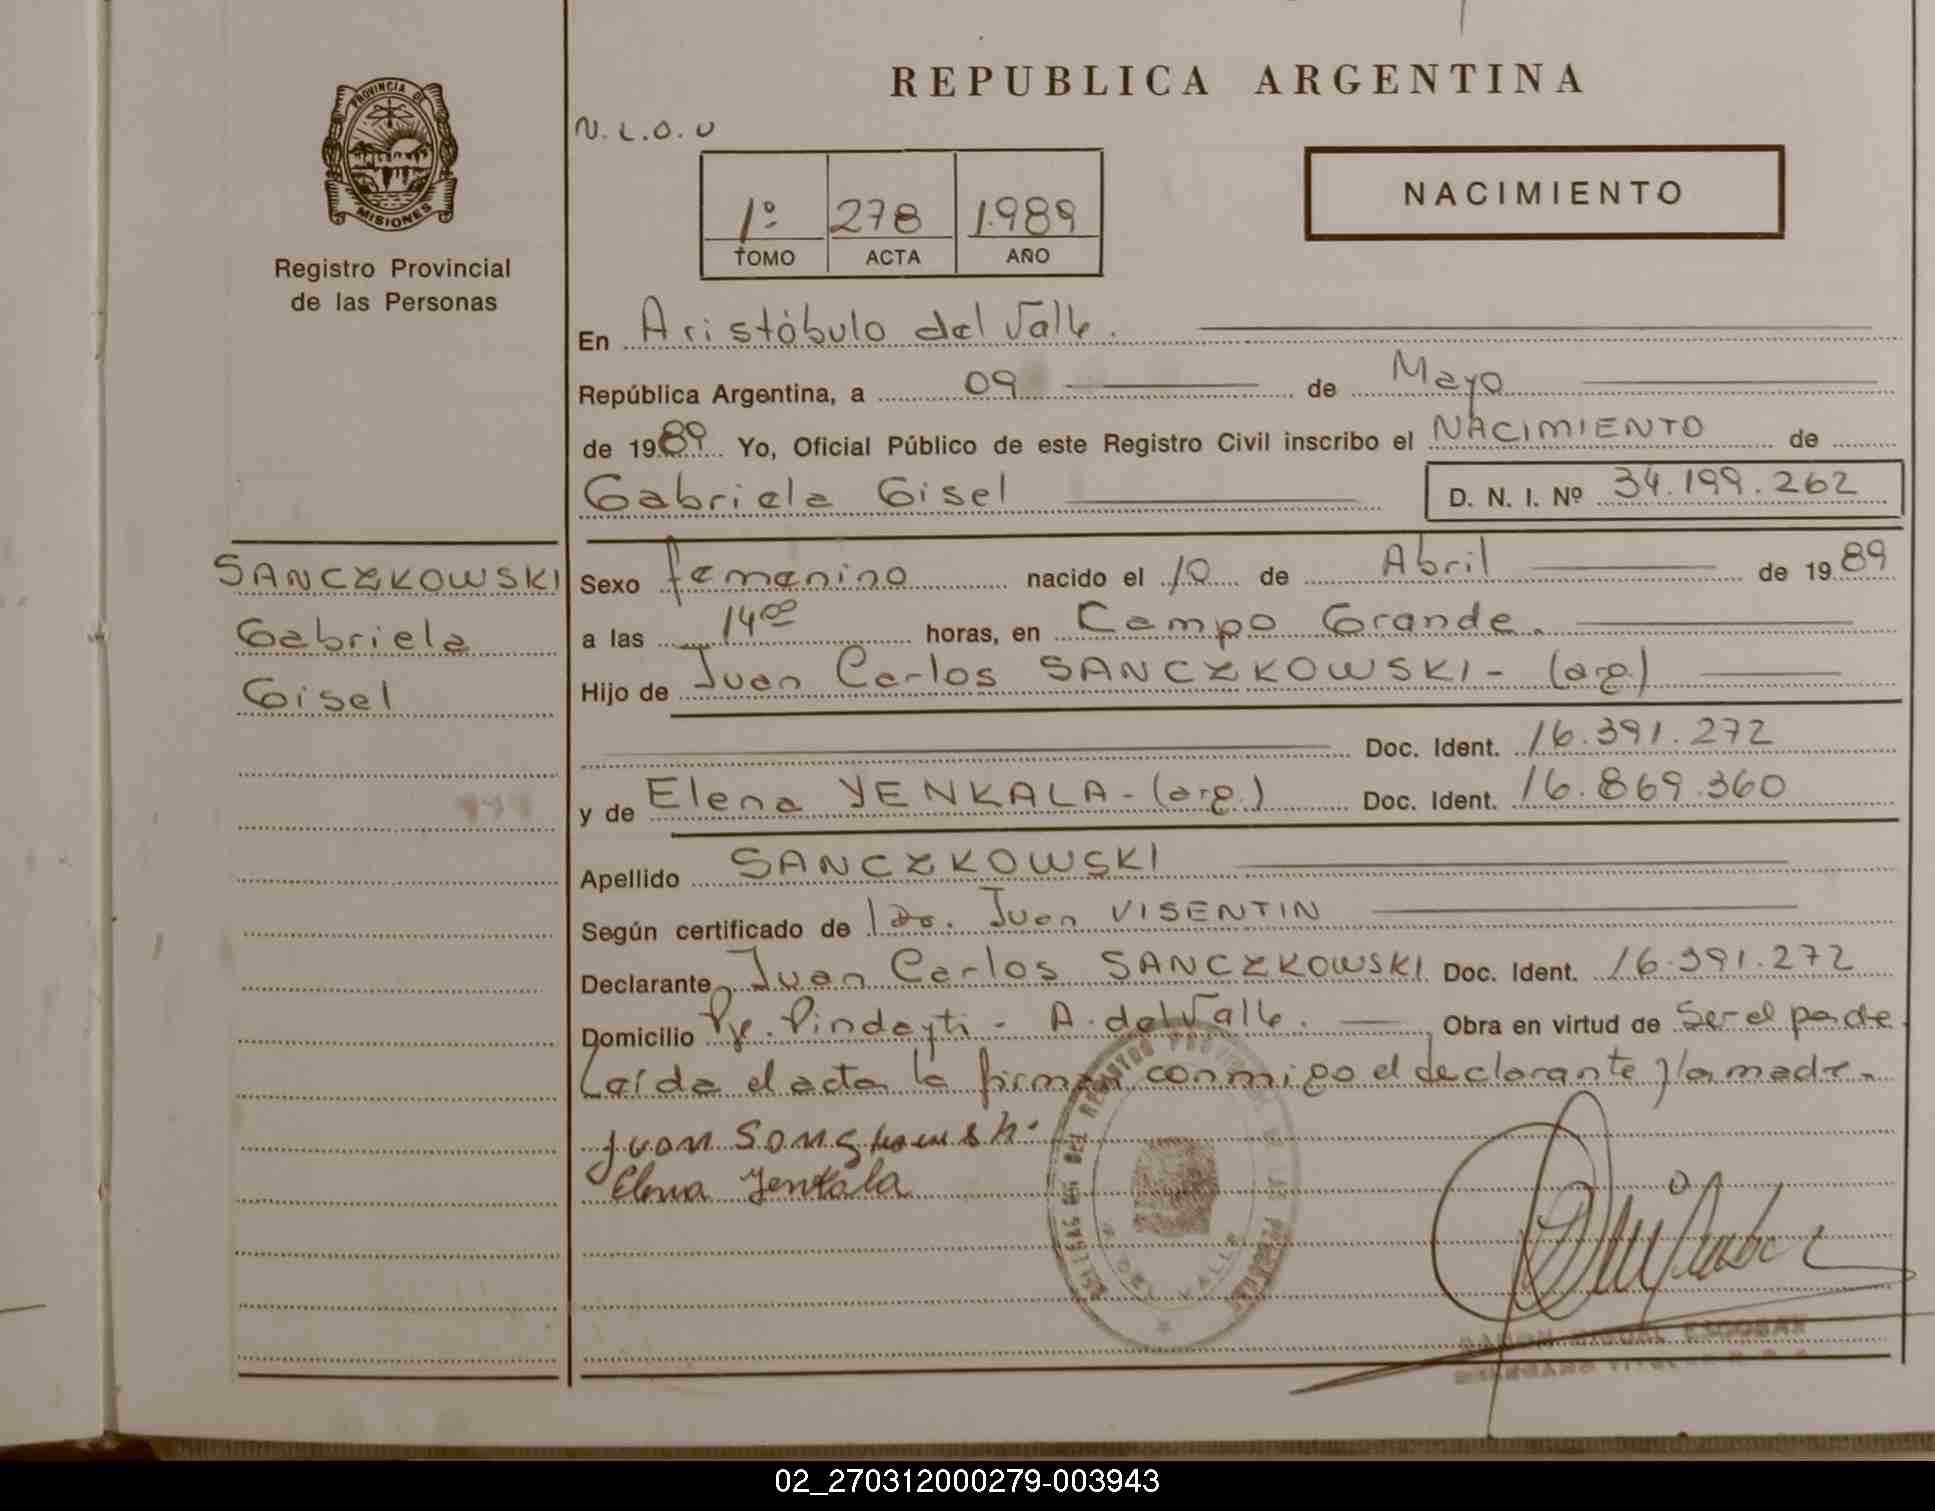 REPUBLICA ARGENTINA
PROVINCIA DE
MISIONES
Registro Provincial
de las Personas
N.L.O.U
NACIMIENTO
1º 278 1.989
TOMO ACTA AÑO
En Aristóbulo del Valle.
República Argentina, a 09 de Mayo
de 1989 Yo, Oficial Público de este Registro Civil inscribo el NACIMIENTO de
Gabriela Gisel D. N. I. Nº 34.199.262
SANCZKOWSKI
Gabriela
Gisel
Sexo femenino nacido el 10 de Abril de 1989
a las 14⁰⁰ horas, en Campo Grande.
Hijo de Juan Carlos SANCZKOWSKI - (arg)
Doc. Ident. 16.391.272
y de Elena YENKALA - (arg.) Doc. Ident. 16.869.360
Apellido SANCZKOWSKI
Según certificado de Juan VISENTIN
Declarante Juan Carlos SANCZKOWSKI Doc. Ident. 16.391.272
Domicilio Pindayti - A. del Valle. Obra en virtud de Ser el padre
Leída el acta la firman conmigo el declarante y la madre.
Juan
Elena Yenkala
DEL VALLE
ESCOBAR
02_270312000279-003943